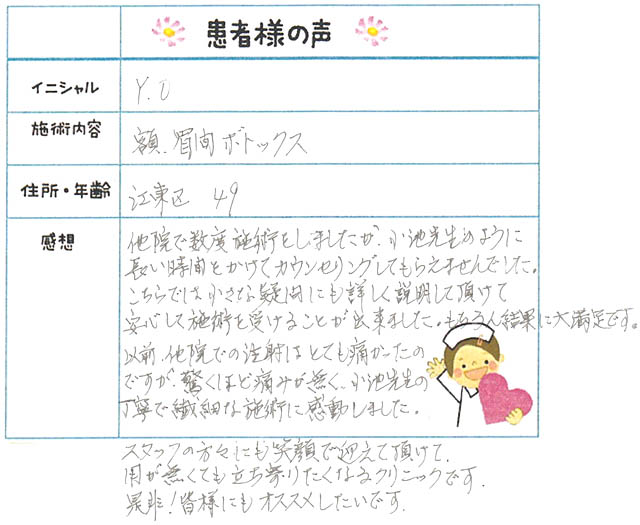 患者様の声
イニシャル Y.O
施術内容 額.眉間ボトックス
住所・年齢 江東区 49
感想 他院で数度施術をしましたが、小池先生のように
長い時間をかけてカウンセリングしてもらえませんでした。
こちらでは小さな疑問にも詳しく説明して頂けて
安心して施術を受けることが出来ました。もちろん結果に大満足です。
以前、他院での注射はとても痛かったの
ですが、驚くほど痛みが無く、小池先生の
丁寧で繊細な施術に感動しました。
スタッフの方々にも笑顔で迎えて頂けて、
用が無くても立ち寄りたくなるクリニックです.
是非!皆様にもオススメしたいです.